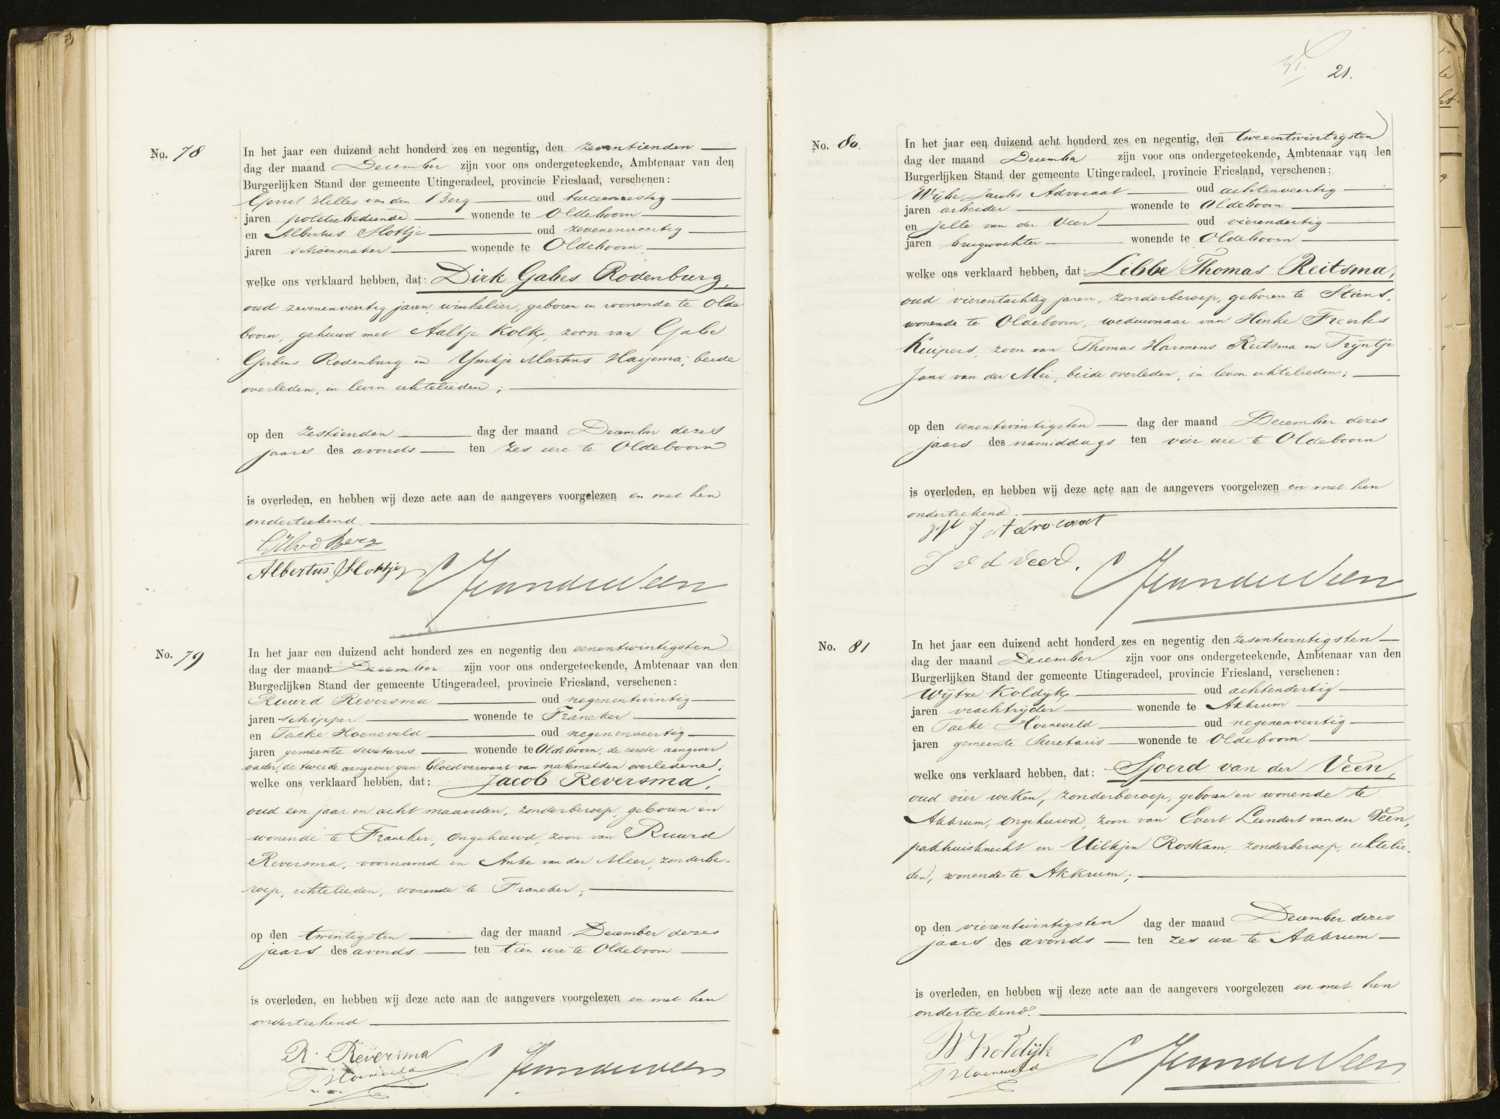 No. 78
In het jaar een duizend acht honderd zes en negentig, den zeventienden
dag der maand December zijn voor ons ondergeteekende, Ambtenaar van den
Burgerlijken Stand der gemeente Utingeradeel, provincie Friesland, verschenen:
Gerrit Helles van den Berg oud tweeenzestig
jaren politiebediende wonende te Oldeboorn
en Albertus Slottje oud zevenenveertig
jaren schoenmaker wonende te Oldeboorn
welke ons verklaard hebben, dat: Dirk Gabes Rodenburg,
oud zevenenveertig jaren, winkelier, geboren en wonende te Olde
boorn, gehuwd met Aaltje Kolk, zoon van Gabe
Gerbens Rodenburg en Ymkje Martens Hayema, beide
overleden, in leven echtelieden;
op den zestienden dag der maand December dezes
jaars des avonds ten zes ure te Oldeboorn
is overleden, en hebben wij deze acte aan de aangevers voorgelezen en met hen
onderteekend.
GHvdBerg
Albertus Slottje
CJvanderVeen
No. 79
In het jaar een duizend acht honderd zes en negentig den eenentwintigsten
dag der maand December zijn voor ons ondergeteekende, Ambtenaar van den
Burgerlijken Stand der gemeente Utingeradeel, provincie Friesland, verschenen:
Ruurd Reversma oud negenentwintig
jaren schipper wonende te Franeker
en Tacke Hoeneveld oud negenenveertig
jaren gemeente secretaris wonende te Oldeboorn, de eerste aangever
vader, de tweede aangever geen bloedverwant van natemelden overledene.
welke ons verklaard hebben, dat: Jacob Reversma,
oud een jaar en acht maanden, zonderberoep, geboren en
wonende te Franeker, ongehuwd, zoon van Ruurd
Reversma, voornoemd en Anke van der Meer, zonderbe-
roep, echtelieden, wonende te Franeker;
op den twintigsten dag der maand December dezes
jaars des avonds ten tien ure te Oldeboorn
is overleden, en hebben wij deze acte aan de aangevers voorgelezen en met hen
onderteekend
R. Reversma
T Hoeneveld
CJvanderVeen
21.
No. 80.
In het jaar een duizend acht honderd zes en negentig, den tweeentwintigsten
dag der maand December zijn voor ons ondergeteekende, Ambtenaar van den
Burgerlijken Stand der gemeente Utingeradeel, provincie Friesland, verschenen:
Wijbe Jacobs Advocaat oud achtenveertig
jaren arbeider wonende te Oldeboorn
en Jelle van der Veer oud vierendertig
jaren brugwachter wonende te Oldeboorn
welke ons verklaard hebben, dat Libbe Thomas Reitsma,
oud vierentachtig jaren, zonderberoep, geboren te Stiens,
wonende te Oldeboorn, weduwnaar van Henke Freerks
Kuipers, zoon van Thomas Harmens Reitsma en Trijntje
Jans van der Mei, beide overleden, in leven echtelieden;
op den eenentwintigsten dag der maand December dezes
jaars des namiddags ten vier ure te Oldeboorn
is overleden, en hebben wij deze acte aan de aangevers voorgelezen en met hen
onderteekend.
W J Advocaat
J v d Veer.
CJvanderVeen
No. 81
In het jaar een duizend acht honderd zes en negentig den zesentwintigsten
dag der maand December zijn voor ons ondergeteekende, Ambtenaar van den
Burgerlijken Stand der gemeente Utingeradeel, provincie Friesland, verschenen:
Wijtze Koldijk oud achtendertig
jaren vrachtrijder wonende te Akkrum
en Tacke Hoeneveld oud negenenveertig
jaren gemeente Secretaris wonende te Oldeboorn
welke ons verklaard hebben, dat: Sjoerd van der Veen,
oud vier weken, zonderberoep, geboren en wonende te
Akkrum, ongehuwd, zoon van Evert Leendert van der Veen,
pakhuisknecht en Uilkjen Roskam, zonderberoep, echtelie-
den, wonende te Akkrum;
op den vierentwintigsten dag der maand December dezes
jaars des avonds ten zes ure te Akkrum
is overleden, en hebben wij deze acte aan de aangevers voorgelezen en met hen
onderteekend.
W Koldijk
T Hoeneveld
CJvanderVeen